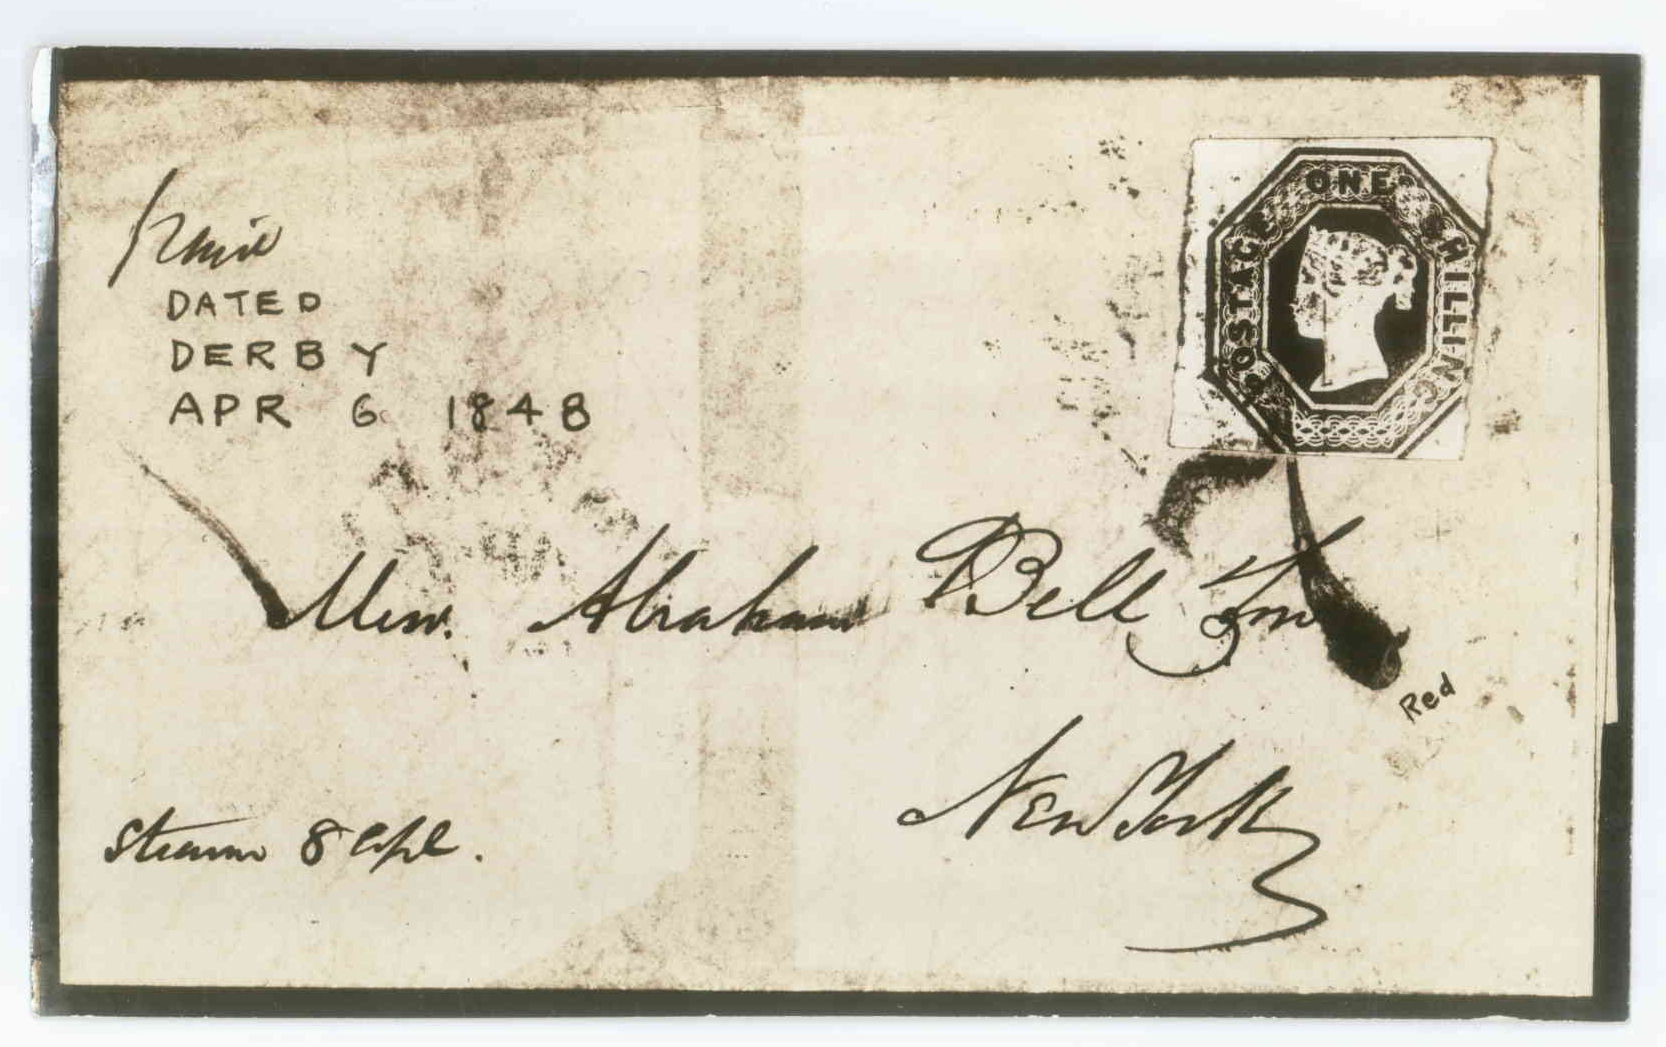 paid
DATED
DERBY
APR 6 1848
POSTAGE ONE SHILLING
Messrs. Abraham Bell Son
Red
New York
Steamer 8 Apl.